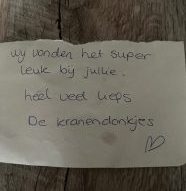 Wij vonden het super
leuk bij jullie.
heel veel liefs
De kranendonkjes